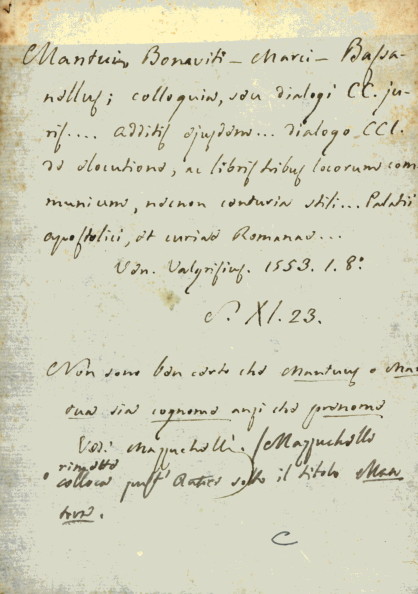 Mantuæ Bonaviti — Marci — Bassa-
nellus; colloquia, seu dialogi CC. ju-
ris.... additis ejusdem... dialogo CCI.
de elocutione, ac libris tribus locorum com
munium, necnon centuria stili... Palatii
apostolici, et curiae Romanae...
Ven. Valgrisius. 1553. 1. 8º
S. XI. 23.
Non sono ben certo che Mantuus o Man
tua sia cognome anzi che prenome
Vedi Mazzuchelli. / Mazzuchelli
rimette
colloca quest' sotto il titolo Man
tova.
C